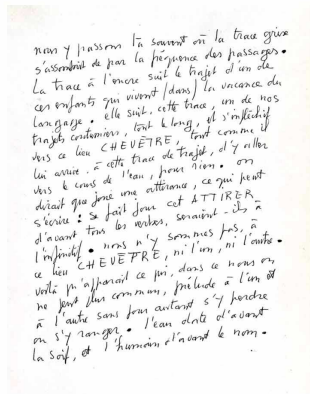 nous y passons là souvent où la trace grise
s'assombrit de par la fréquence des passages.
La trace à l'encre suit le trajet d'un de
ces enfants qui vivent /dans/ la vacance du
langage. elle suit, cette trace, un de nos
trajets coutumiers, tout le long, et s'infléchit
vers ce lieu CHEVÊTRE, tout comme il
lui arrive, à cette trace de trajet, d'y aller
vers le cours de l'eau, pour rien. on
dirait que joue une attirance, ce qui peut
s'écrire : se fait jour cet ATTIRER
d'avant tous les verbes, seraient-ils à
l'infinitif. nous n'y sommes pas, à
ce lieu CHEVÊTRE, ni l'un, ni l'autre.
voilà qu'apparaît ce qui, dans ce nous on
ne peut plus commun, prélude à l'un et
à l'autre sans pour autant s'y perdre
ou s'y ranger. l'eau date d'avant
la soif, et l'humain d'avant le nom.